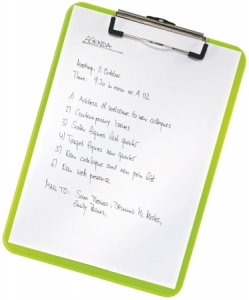 AGENDA
Meeting: 11 October
Time: 9.30 in room no A 112
1) Address of welcome to new colleagues
2) Contemporary issues
3) Sales figures last quarter
4) Target figures new quarter
5) New catalogue and new price list
6) New web presence
MAIL TO: Sam Thomas, Dominic
Emily